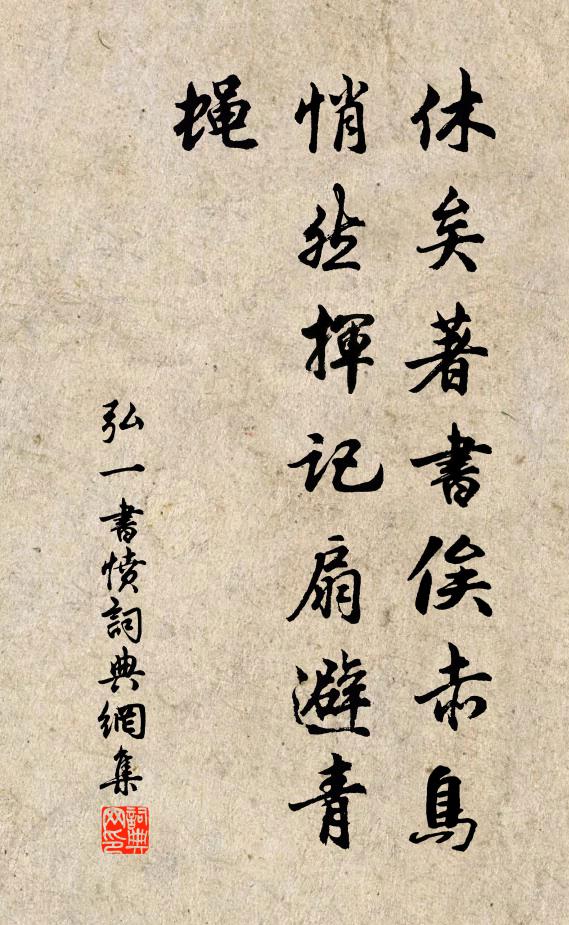 休矣著書俟赤鳥
悄然揮記扇避青
蝇
弘一書憤詞典網集
詞典
网印